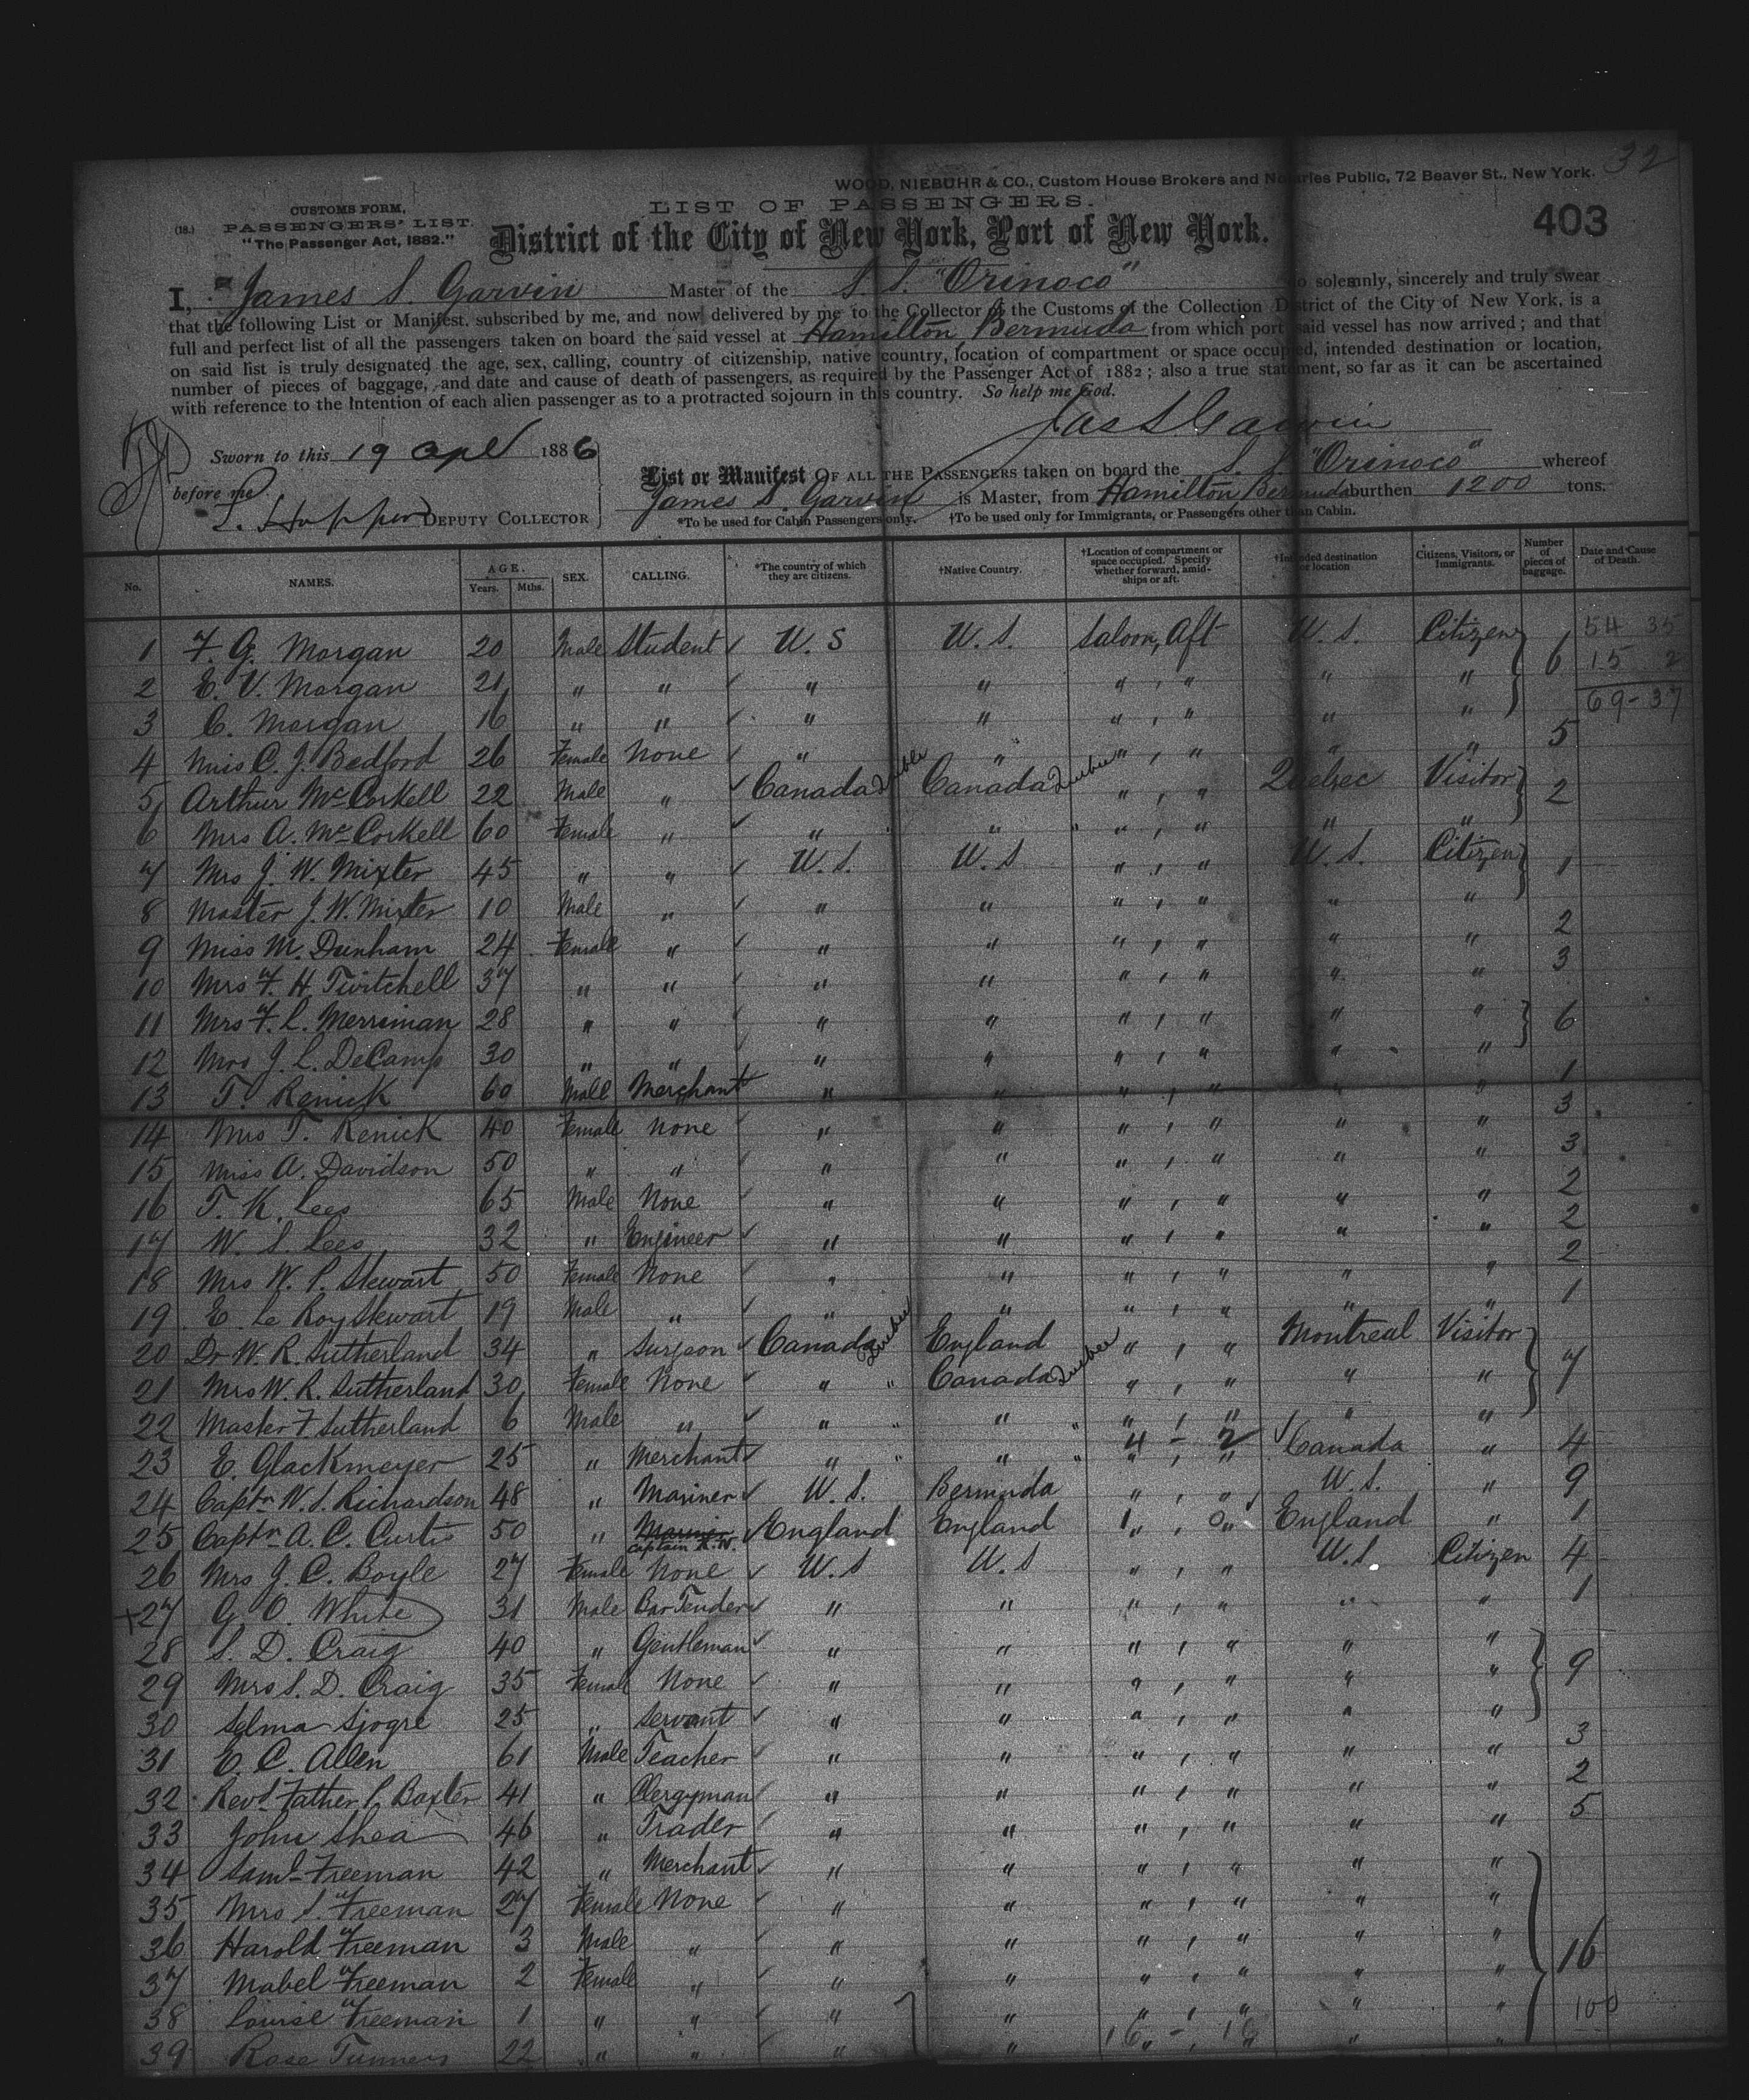 32
WOOD, NIEBUHR & CO., Custom House Brokers and Notaries Public, 72 Beaver St., New York.
(18.)
CUSTOMS FORM,
PASSENGERS' LIST.
"The Passenger Act, 1882."
LIST OF PASSENGERS.
District of the City of New York, Port of New York.
403
I, James S. Garvin Master of the S. S. "Orinoco" do solemnly, sincerely and truly swear
that the following List or Manifest, subscribed by me, and now delivered by me to the Collector of the Customs of the Collection District of the City of New York, is a
full and perfect list of all the passengers taken on board the said vessel at Hamilton, Bermuda from which port said vessel has now arrived; and that
on said list is truly designated the age, sex, calling, country of citizenship, native country, location of compartment or space occupied, intended destination or location,
number of pieces of baggage, and date and cause of death of passengers, as required by the Passenger Act of 1882; also a true statement, so far as it can be ascertained
with reference to the Intention of each alien passenger as to a protracted sojourn in this country. So help me God.
Jas S Garvin
Sworn to this 19 Apl 1886
before me
DEPUTY COLLECTOR
List or Manifest OF ALL THE PASSENGERS taken on board the S. S. "Orinoco" whereof
James S. Garvin is Master, from Hamilton Bermuda burthen 1200 tons.
*To be used for Cabin Passengers only. †To be used only for Immigrants, or Passengers other than Cabin.
No. NAMES. AGE. Years. Mths. SEX. CALLING. *The country of which they are citizens. †Native Country. †Location of compartment or space occupied. Specify whether forward, amidships or aft. †Intended destination or location Citizens, Visitors, or Immigrants. Number of pieces of baggage. Date and Cause of Death.
1 F. G. Morgan 20 Male Student ✓ U. S U. S. Saloon, Aft U. S. Citizen 6 54 35
2 E. V. Morgan 21 " " ✓ " " " , " " " 15 2
3 C. Morgan 16 " " ✓ " " " , " " " 69-37
4 Miss C. J. Bedford 26 Female None ✓ " " " , " " " 5
5 Arthur McCorkell 22 Male " ✓ Canada Quebec Canada Quebec " , " Quebec Visitor 2
6 Mrs A. McCorkell 60 Female " ✓ " " " " " , " " "
7 Mrs J. W. Mixter 45 " " ✓ U. S. U. S " , " U. S. Citizen 1
8 Master J. W. Mixter 10 Male " ✓ " " " , " " "
9 Miss M. Dunham 24 Female " ✓ " " " , " " " 2
10 Mrs F. H. Twitchell 37 " " ✓ " " " , " " " 3
11 Mrs F. L. Merriman 28 " " ✓ " " " , " " " 6
12 Mrs J. L. DeCamp 30 " " ✓ " " " , " " "
13 T. Renick 60 Male Merchant " " " , " " " 1
14 Mrs T. Renick 40 Female None ✓ " " " , " " " 3
15 Miss A. Davidson 50 " " ✓ " " " , " " " 3
16 T. K. Lees 65 Male None ✓ " " " , " " " 2
17 W. S. Lees 32 " Engineer ✓ " " " , " " " 2
18 Mrs W. P. Stewart 50 Female None ✓ " " " , " " " 2
19 E. Le Roy Stewart 19 Male " ✓ " " " , " " " 1
20 Dr W. R. Sutherland 34 " Surgeon ✓ Canada Quebec England " , " Montreal Visitor 7
21 Mrs W. R. Sutherland 30 Female None ✓ " " Canada Quebec " , " " "
22 Master F Sutherland 6 Male " ✓ " " " " " , " " "
23 E. Glackmeyer 25 " Merchant ✓ " " " " 4 - 2 " , " ✓ Canada " 4
24 Captn W. S. Richardson 48 " Mariner ✓ U. S. Bermuda " , " U. S. " 9
25 Captn A. C. Curtis 50 " Mariner Captain R.N. ✓ England England 1 " , 0 " England " 1
26 Mrs J. C. Boyle 27 Female None ✓ U. S U. S " , " U. S. Citizen 4
+27 G. O. White 31 Male BarTender ✓ " " " , " " " 1
28 S. D. Craig 40 " Gentleman ✓ " " " , " " " 9
29 Mrs S. D. Craig 35 Female None ✓ " " " , " " "
30 Selma Sjogre 25 " Servant ✓ " " " , " " "
31 E. C. Allen 61 Male Teacher ✓ " " " , " " " 3
32 Revd Father P. Baxter 41 " Clergyman ✓ " " " , " " " 2
33 John Shea 46 " Trader ✓ " " " , " " " 5
34 Saml Freeman 42 " Merchant ✓ " " " , " " " 16
35 Mrs S. Freeman 27 Female None ✓ " " " , " " "
36 Harold Freeman 3 Male " ✓ " " " , " " "
37 Mabel Freeman 2 Female " ✓ " " " , " " "
38 Louise Freeman 1 " " ✓ " " " , " " " 100
39 Rose 22 " " ✓ " " 16 - 16 " "